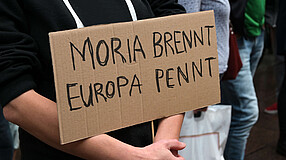 MORIA BRENNT
EUROPA PENNT